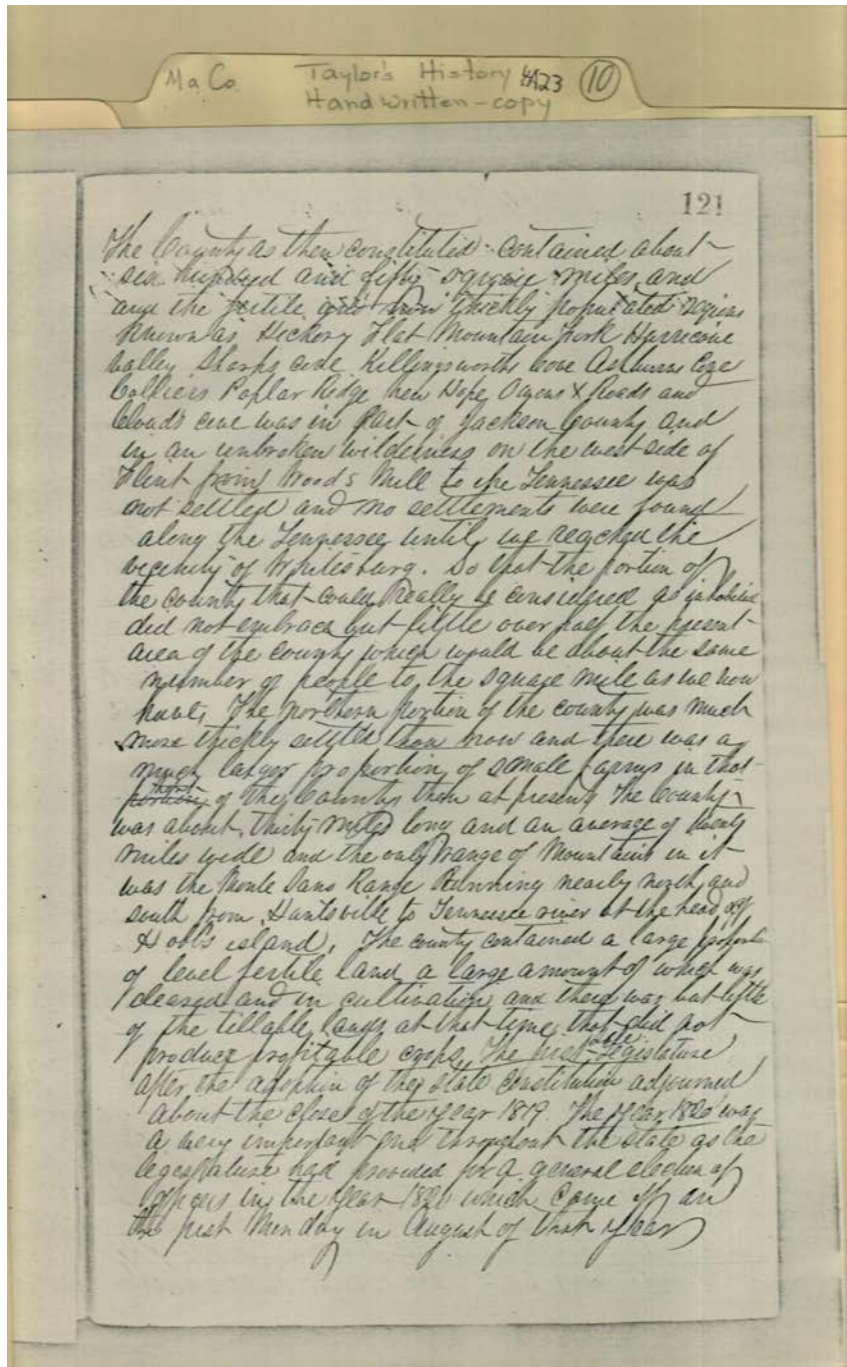 Ma Co. Taylor's History 4A23 10
Handwritten - copy
121
The County as then constituted contained about
six hundred and fifty square miles and
the fertile and now thickly populated regions
known as Hickory Flat Mountain Fork Hurricane
Valley Sharps cove Killingsworths cove Ashburns Cove
Colliers Poplar Ridge New Hope Owens X Roads and
Clouds cove was in part of Jackson County and
in an unbroken wilderness on the west side of
Flint from Woods Mill to the Tennessee was
not settled and no settlements were found
along the Tennessee until we reached the
vicinity of Whitesburg. So that the portion of
the county that could really be considered as inhabited
did not embrace but little over half the present
area of the county which would be about the same
number of people to the square mile as we now
have, The northern portion of the county was much
more thickly settled than now and there was a
much larger proportion of small farms in that
portion of the County then at present The County
was about thirty miles long and an average of twenty
miles wide and the only range of Mountains in it
was the Monte Sano Range Running nearly north and
south from Huntsville to Tennessee river at the head of
Hobbs island, The county contained a large proportion
of level fertile land a large amount of which was
cleared and in cultivation and there was but little
of the tillable lands at that time that did not
produce profitable crops, The first State Legislature
after the adoption of the state constitution adjourned
about the close of the year 1819. The year 1820 was
a very important one throughout the state as the
legislature had provided for a general election of
officers in the year 1820 which came off on
the first Monday in August of that year